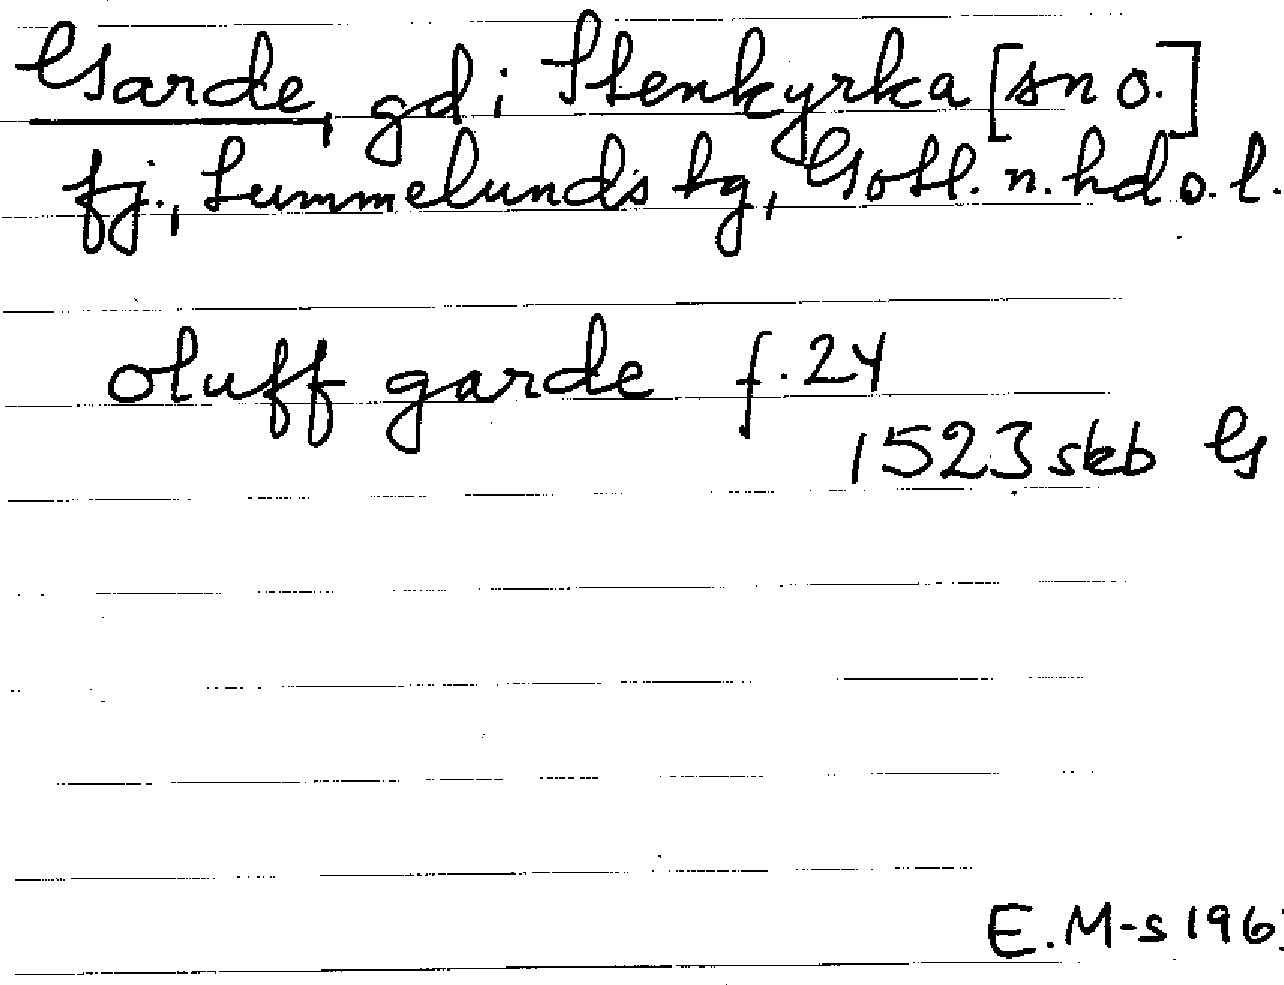 Garde, gd i Stenkyrka [sn o.]
fj., Lummelunds tg, Gotl. n. hd o. l.
oluff garde f. 24
1523 skb G
E.M-s 196